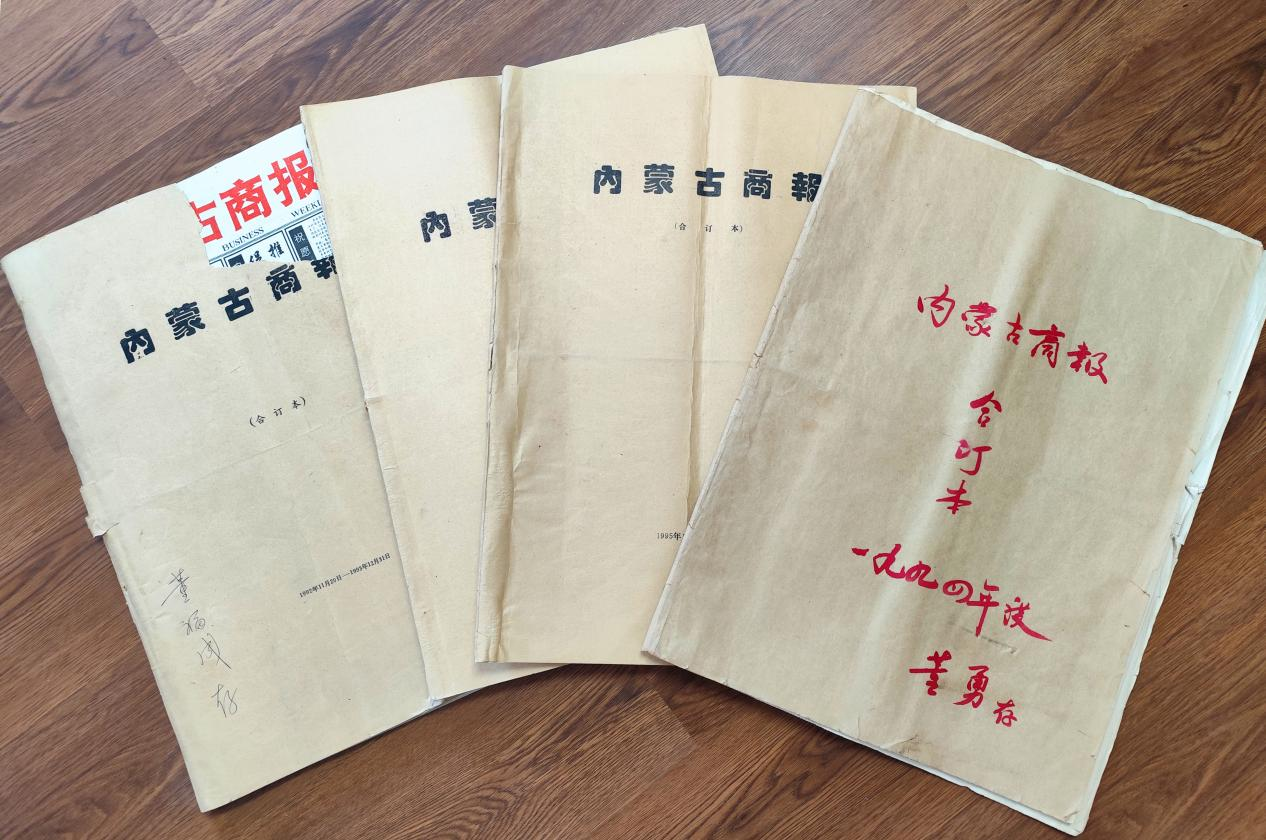 古商报
BUSINESS WEEKL
祝愿
內蒙古商報
(合订本)
1992年11月20日—1993年12月31日
董福成存
內蒙
內蒙古商報
(合订本)
1995年
内蒙古商報
合
订
本
一九九四年度
董勇存